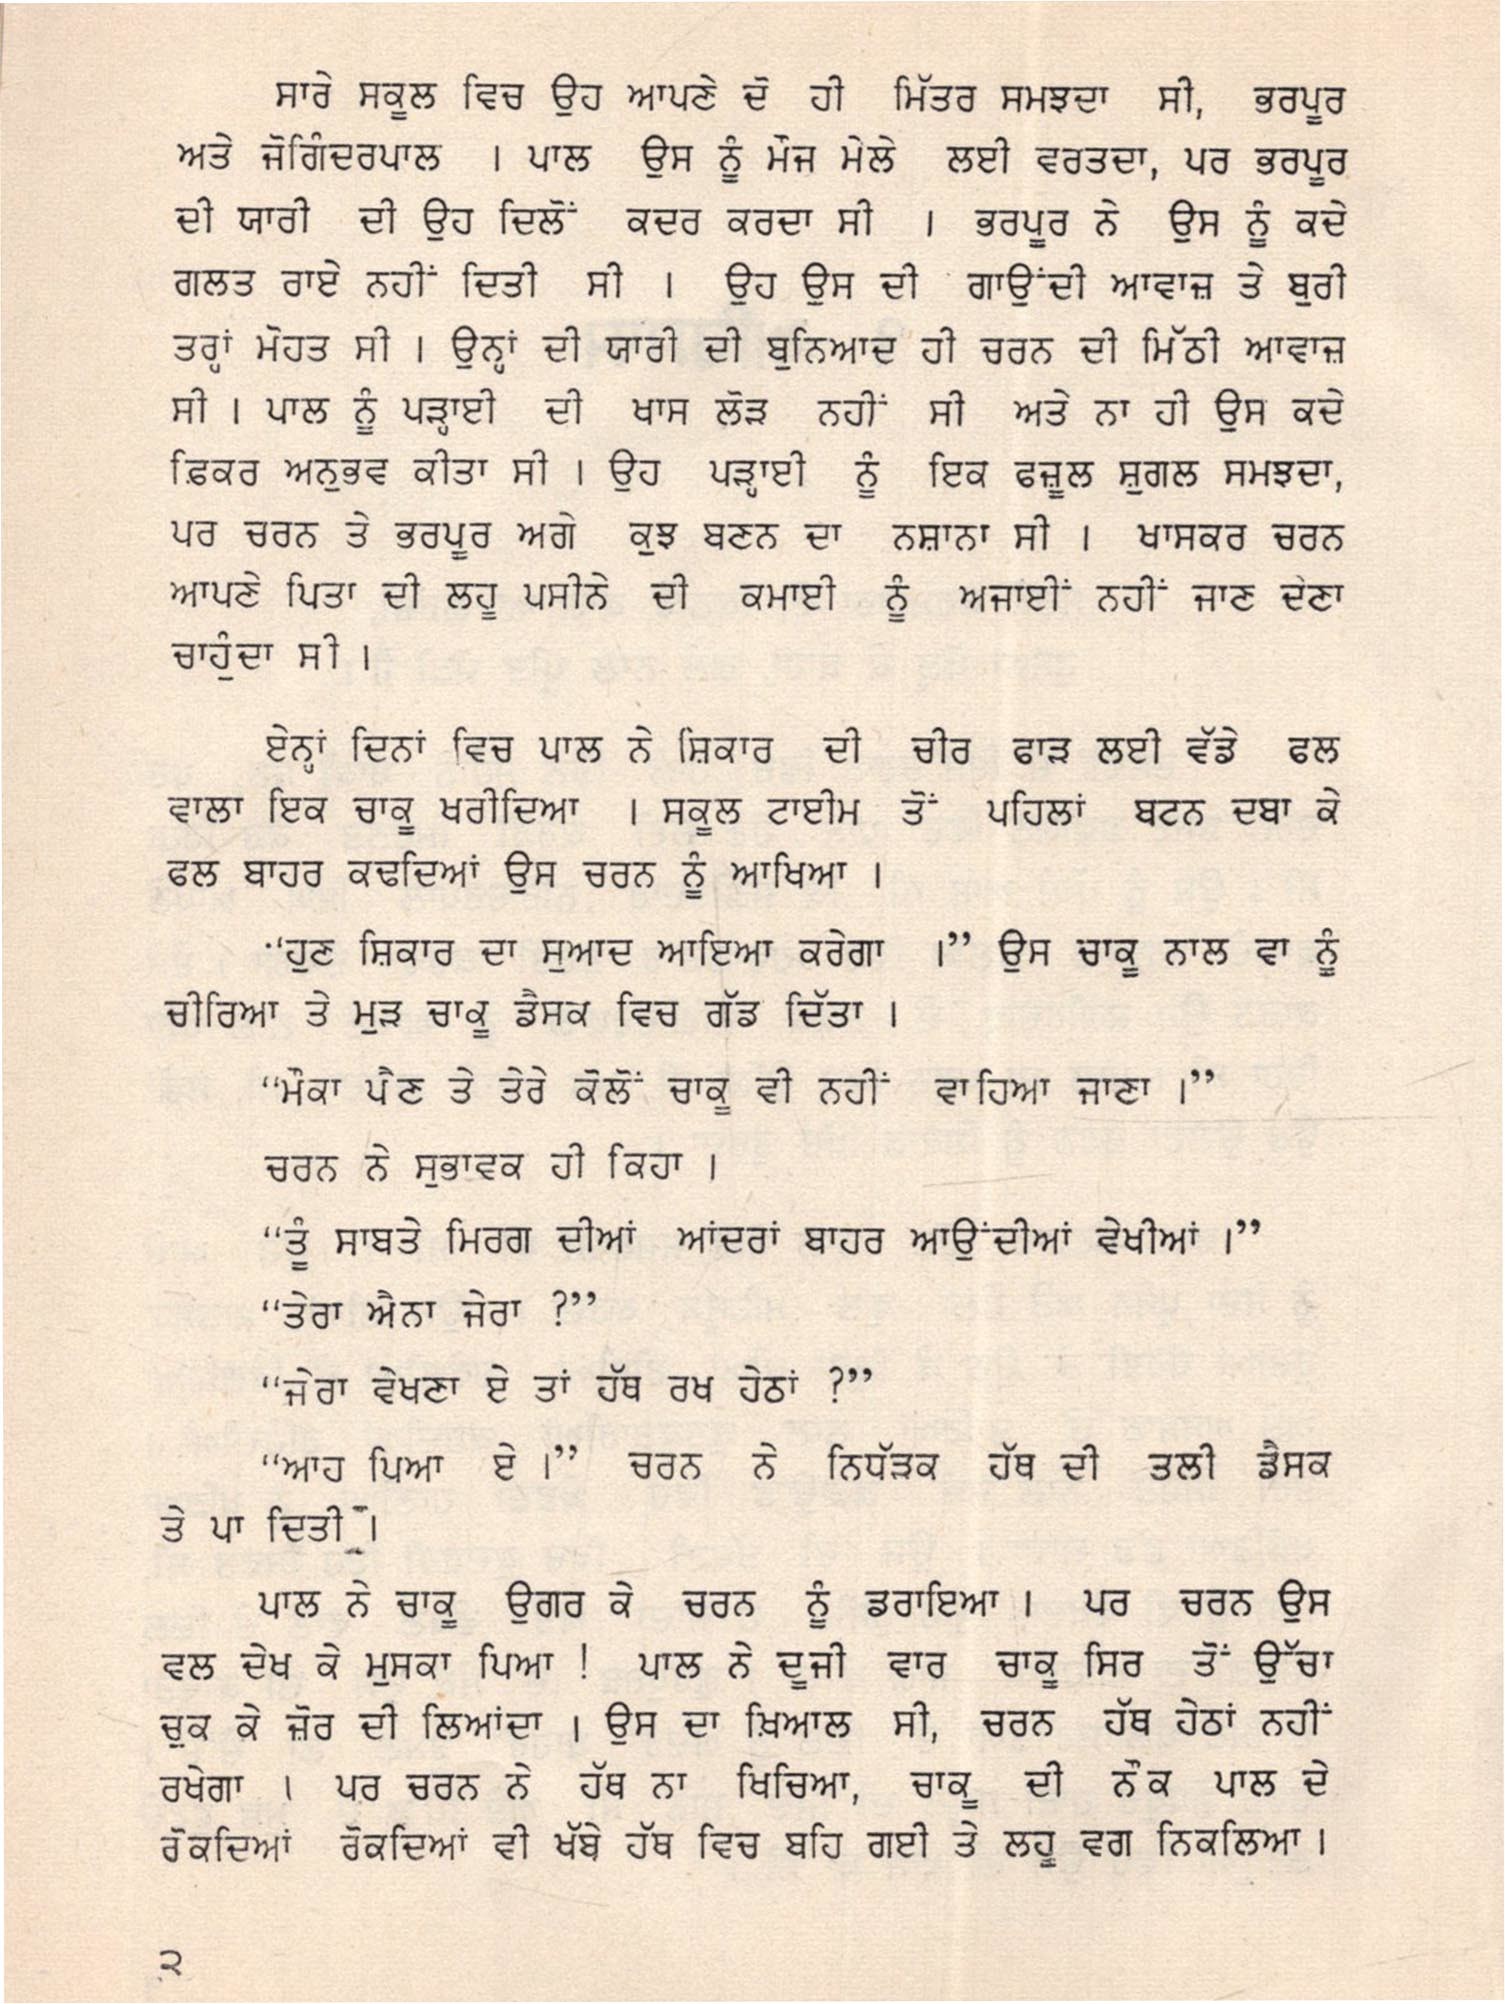 ਸਾਰੇ ਸਕੂਲ ਵਿਚ ਉਹ ਆਪਣੇ ਦੋ ਹੀ ਮਿੱਤਰ ਸਮਝਦਾ ਸੀ, ਭਰਪੂਰ
ਅਤੇ ਜੋਗਿੰਦਰਪਾਲ । ਪਾਲ ਉਸ ਨੂੰ ਮੌਜ ਮੇਲੇ ਲਈ ਵਰਤਦਾ, ਪਰ ਭਰਪੂਰ
ਦੀ ਯਾਰੀ ਦੀ ਉਹ ਦਿਲੋਂ ਕਦਰ ਕਰਦਾ ਸੀ । ਭਰਪੂਰ ਨੇ ਉਸ ਨੂੰ ਕਦੇ
ਗਲਤ ਰਾਏ ਨਹੀਂ ਦਿਤੀ ਸੀ । ਉਹ ਉਸ ਦੀ ਗਾਉਂਦੀ ਆਵਾਜ਼ ਤੇ ਬੁਰੀ
ਤਰ੍ਹਾਂ ਮੋਹਤ ਸੀ । ਉਨ੍ਹਾਂ ਦੀ ਯਾਰੀ ਦੀ ਬੁਨਿਆਦ ਹੀ ਚਰਨ ਦੀ ਮਿੱਠੀ ਆਵਾਜ਼
ਸੀ । ਪਾਲ ਨੂੰ ਪੜ੍ਹਾਈ ਦੀ ਖਾਸ ਲੋੜ ਨਹੀਂ ਸੀ ਅਤੇ ਨਾ ਹੀ ਉਸ ਕਦੇ
ਫ਼ਿਕਰ ਅਨੁਭਵ ਕੀਤਾ ਸੀ । ਉਹ ਪੜ੍ਹਾਈ ਨੂੰ ਇਕ ਫਜ਼ੂਲ ਸ਼ੁਗਲ ਸਮਝਦਾ,
ਪਰ ਚਰਨ ਤੇ ਭਰਪੂਰ ਅਗੇ ਕੁਝ ਬਣਨ ਦਾ ਨਸ਼ਾਨਾ ਸੀ । ਖਾਸਕਰ ਚਰਨ
ਆਪਣੇ ਪਿਤਾ ਦੀ ਲਹੂ ਪਸੀਨੇ ਦੀ ਕਮਾਈ ਨੂੰ ਅਜਾਈਂ ਨਹੀਂ ਜਾਣ ਦੇਣਾ
ਚਾਹੁੰਦਾ ਸੀ ।
ਏਨ੍ਹਾਂ ਦਿਨਾਂ ਵਿਚ ਪਾਲ ਨੇ ਸ਼ਿਕਾਰ ਦੀ ਚੀਰ ਫਾੜ ਲਈ ਵੱਡੇ ਫਲ
ਵਾਲਾ ਇਕ ਚਾਕੂ ਖਰੀਦਿਆ । ਸਕੂਲ ਟਾਈਮ ਤੋਂ ਪਹਿਲਾਂ ਬਟਨ ਦਬਾ ਕੇ
ਫਲ ਬਾਹਰ ਕਢਦਿਆਂ ਉਸ ਚਰਨ ਨੂੰ ਆਖਿਆ ।
“ਹੁਣ ਸ਼ਿਕਾਰ ਦਾ ਸੁਆਦ ਆਇਆ ਕਰੇਗਾ ।” ਉਸ ਚਾਕੂ ਨਾਲ ਵਾ ਨੂੰ
ਚੀਰਿਆ ਤੇ ਮੁੜ ਚਾਕੂ ਡੈਸਕ ਵਿਚ ਗੱਡ ਦਿੱਤਾ ।
“ਮੌਕਾ ਪੈਣ ਤੇ ਤੇਰੇ ਕੋਲੋਂ ਚਾਕੂ ਵੀ ਨਹੀਂ ਵਾਹਿਆ ਜਾਣਾ ।”
ਚਰਨ ਨੇ ਸੁਭਾਵਕ ਹੀ ਕਿਹਾ ।
“ਤੂੰ ਸਾਬਤੇ ਮਿਰਗ ਦੀਆਂ ਆਂਦਰਾਂ ਬਾਹਰ ਆਉਂਦੀਆਂ ਵੇਖੀਆਂ ।”
“ਤੇਰਾ ਐਨਾ ਜੇਰਾ ?”
“ਜੇਰਾ ਵੇਖਣਾ ਏ ਤਾਂ ਹੱਥ ਰਖ ਹੇਠਾਂ ?”
“ਆਹ ਪਿਆ ਏ ।” ਚਰਨ ਨੇ ਨਿਧੱੜਕ ਹੱਥ ਦੀ ਤਲੀ ਡੈਸਕ
ਤੇ ਪਾ ਦਿਤੀ ।
ਪਾਲ ਨੇ ਚਾਕੂ ਉਗਰ ਕੇ ਚਰਨ ਨੂੰ ਡਰਾਇਆ । ਪਰ ਚਰਨ ਉਸ
ਵਲ ਦੇਖ ਕੇ ਮੁਸਕਾ ਪਿਆ ! ਪਾਲ ਨੇ ਦੂਜੀ ਵਾਰ ਚਾਕੂ ਸਿਰ ਤੋਂ ਉੱਚਾ
ਚੁਕ ਕੇ ਜ਼ੋਰ ਦੀ ਲਿਆਂਦਾ । ਉਸ ਦਾ ਖ਼ਿਆਲ ਸੀ, ਚਰਨ ਹੱਥ ਹੇਠਾਂ ਨਹੀਂ
ਰਖੇਗਾ । ਪਰ ਚਰਨ ਨੇ ਹੱਥ ਨਾ ਖਿਚਿਆ, ਚਾਕੂ ਦੀ ਨੌਕ ਪਾਲ ਦੇ
ਰੋਕਦਿਆਂ ਰੋਕਦਿਆਂ ਵੀ ਖੱਬੇ ਹੱਥ ਵਿਚ ਬਹਿ ਗਈ ਤੇ ਲਹੂ ਵਗ ਨਿਕਲਿਆ ।
੨